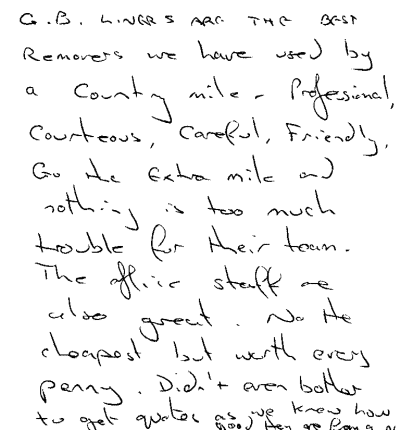 G.B. LINERS ARE THE BEST
Removers we have used by
a Country mile - Professional,
Courteous, Careful, Friendly,
Go the Extra mile and
nothing is too much
trouble for their team.
The office staff are
also great. Not the
cheapest but worth every
penny. Didn't even bother
to get quotes as we know how
good they are from a